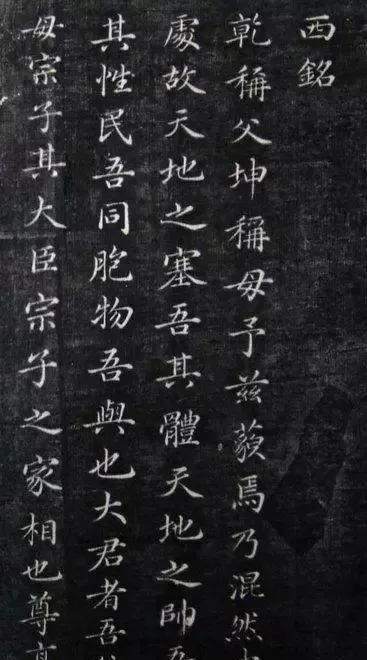 西銘
乾稱父坤稱母予茲藐焉乃混然
處故天地之塞吾其體天地之帥吾
其性民吾同胞物吾與也大君者吾
母宗子其大臣宗子之家相也尊高